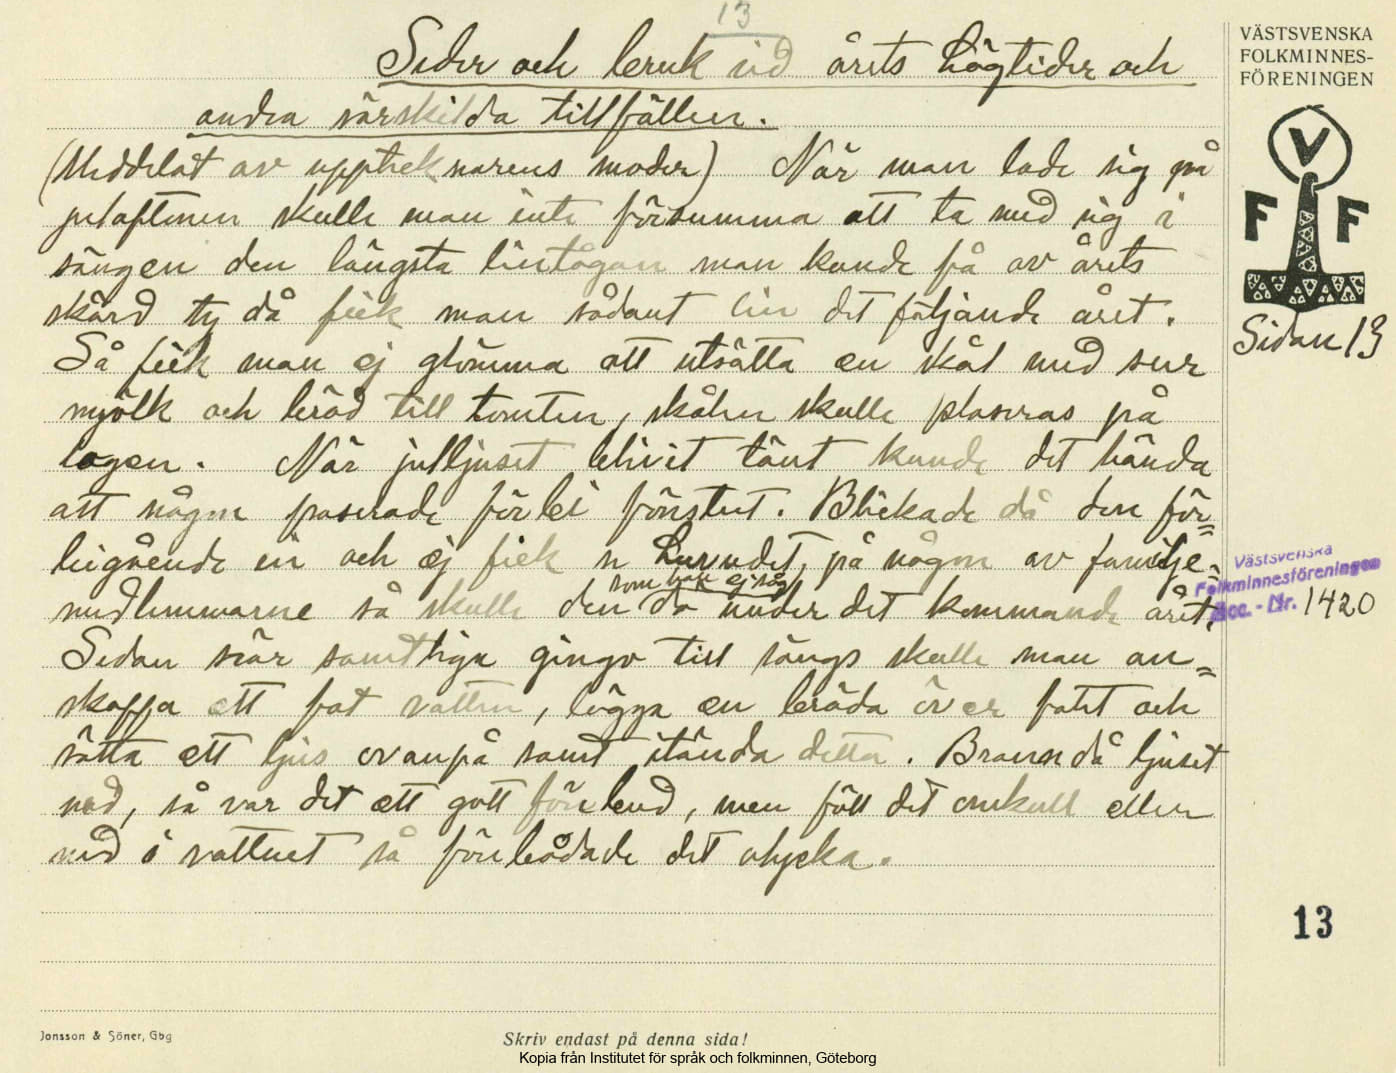 13
Seder och bruk vid årets högtider och
andra särskilda tillfällen.
(Meddelat av upptecknarens moder) När man lade sig på
julaftonen skulle man inte försumma att ta med sig i
sängen den längsta lintågan man kunde få av årets
skörd ty då fick man sådant lin det följande året.
Så fick man ej glömma att utsätta en skål med sur
mjölk och bröd till tomten, skålen skulle placeras på
logen. När julljuset blivit tänt kunde det hända
att någon paserade förbi fönstret. Blickade då den för-
bigående in och ej fick se huvudet på någon av familje-
medlemmarne så skulle den som han ej såg dö under det kommande året.
Sedan när samtliga gingo till sängs skulle man an-
skaffa ett fat vatten, lägga en bräda över fatet och
sätta ett ljus ovanpå samt itända detta. Brann då ljuset
ned, så var det ett gott förebud, men föll det omkull eller
ned i vattnet så förebådade det olycka.
VÄSTSVENSKA
FOLKMINNES-
FÖRENINGEN
V
F F
Sidan 13
Västsvenska
Folkminnesföreningen
Acc. - Nr. 1420
13
Jonsson & Söner, Gbg
Skriv endast på denna sida!
Kopia från Institutet för språk och folkminnen, Göteborg